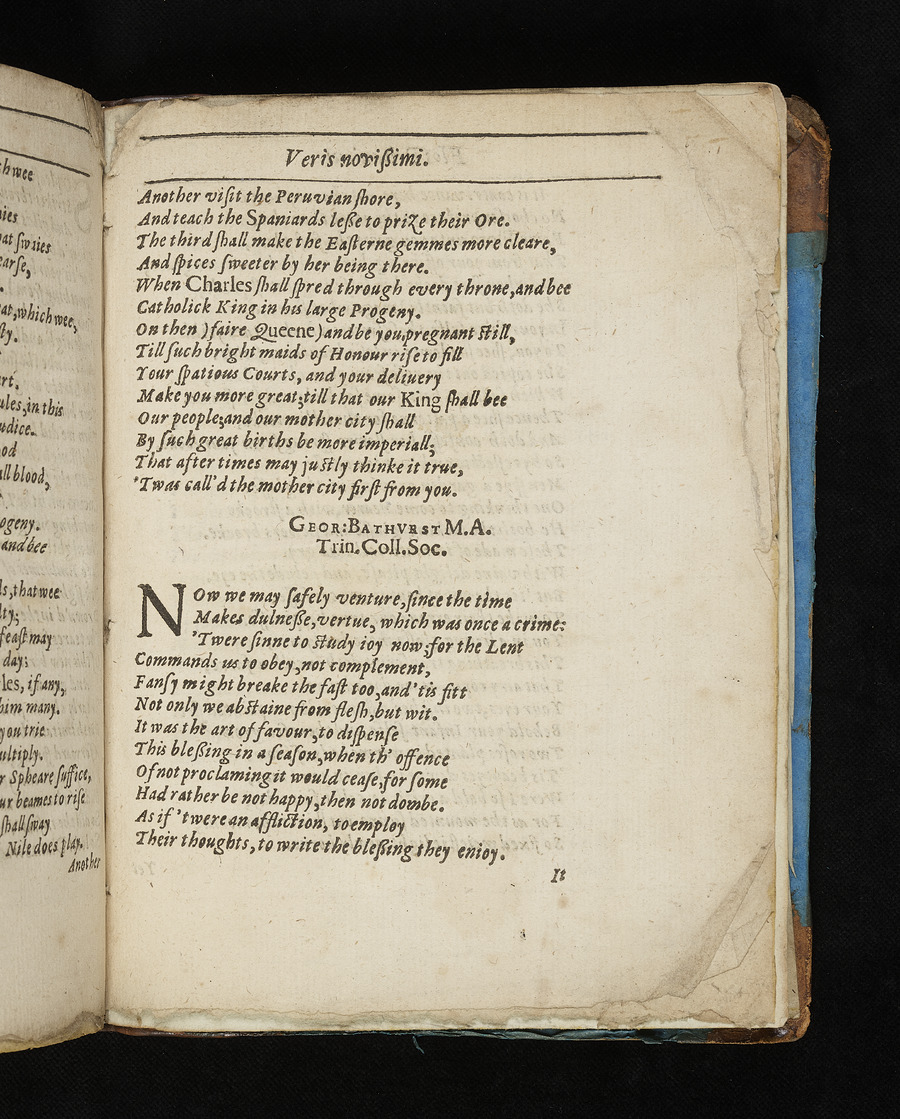 thwee
ies
at swaies
earse,
eat, which wee,
sty.
rt.
ules, in this
udice.
od
all blood,
ogeny.
and bee
ds, that wee
lty;
feast may
day:
les, if any,
him many.
you trie
ultiply.
r Spheare suffice,
ur beames to rise
shall sway
Nile does play.
Another
Veris novißimi.
Another visit the Peruvian shore,
And teach the Spaniards leße to prize their Ore.
The third shall make the Easterne gemmes more cleare,
And spices sweeter by her being there.
When Charles shall spred through every throne, and bee
Catholick King in his large Progeny.
On then )faire Queene) and be you pregnant still,
Till such bright maids of Honour rise to fill
Your spatious Courts, and your deliuery
Make you more great; till that our King shall bee
Our people; and our mother city shall
By such great births be more imperiall;
That after times may justly thinke it true,
'Twas call'd the mother city first from you.
GEOR: BATHVRST M.A.
Trin. Coll. Soc.
NOw we may safely venture, since the time
Makes dulneße, vertue, which was once a crime:
'Twere sinne to study ioy now; for the Lent
Commands us to obey, not complement,
Fansy might breake the fast too, and 'tis fitt
Not only we abstaine from flesh, but wit.
It was the art of favour, to dispense
This bleßing in a season, when th' offence
Of not proclaming it would cease, for some
Had rather be not happy, then not dombe.
As if 'twere an affliction, to employ
Their thoughts, to write the bleßing they enioy.
It